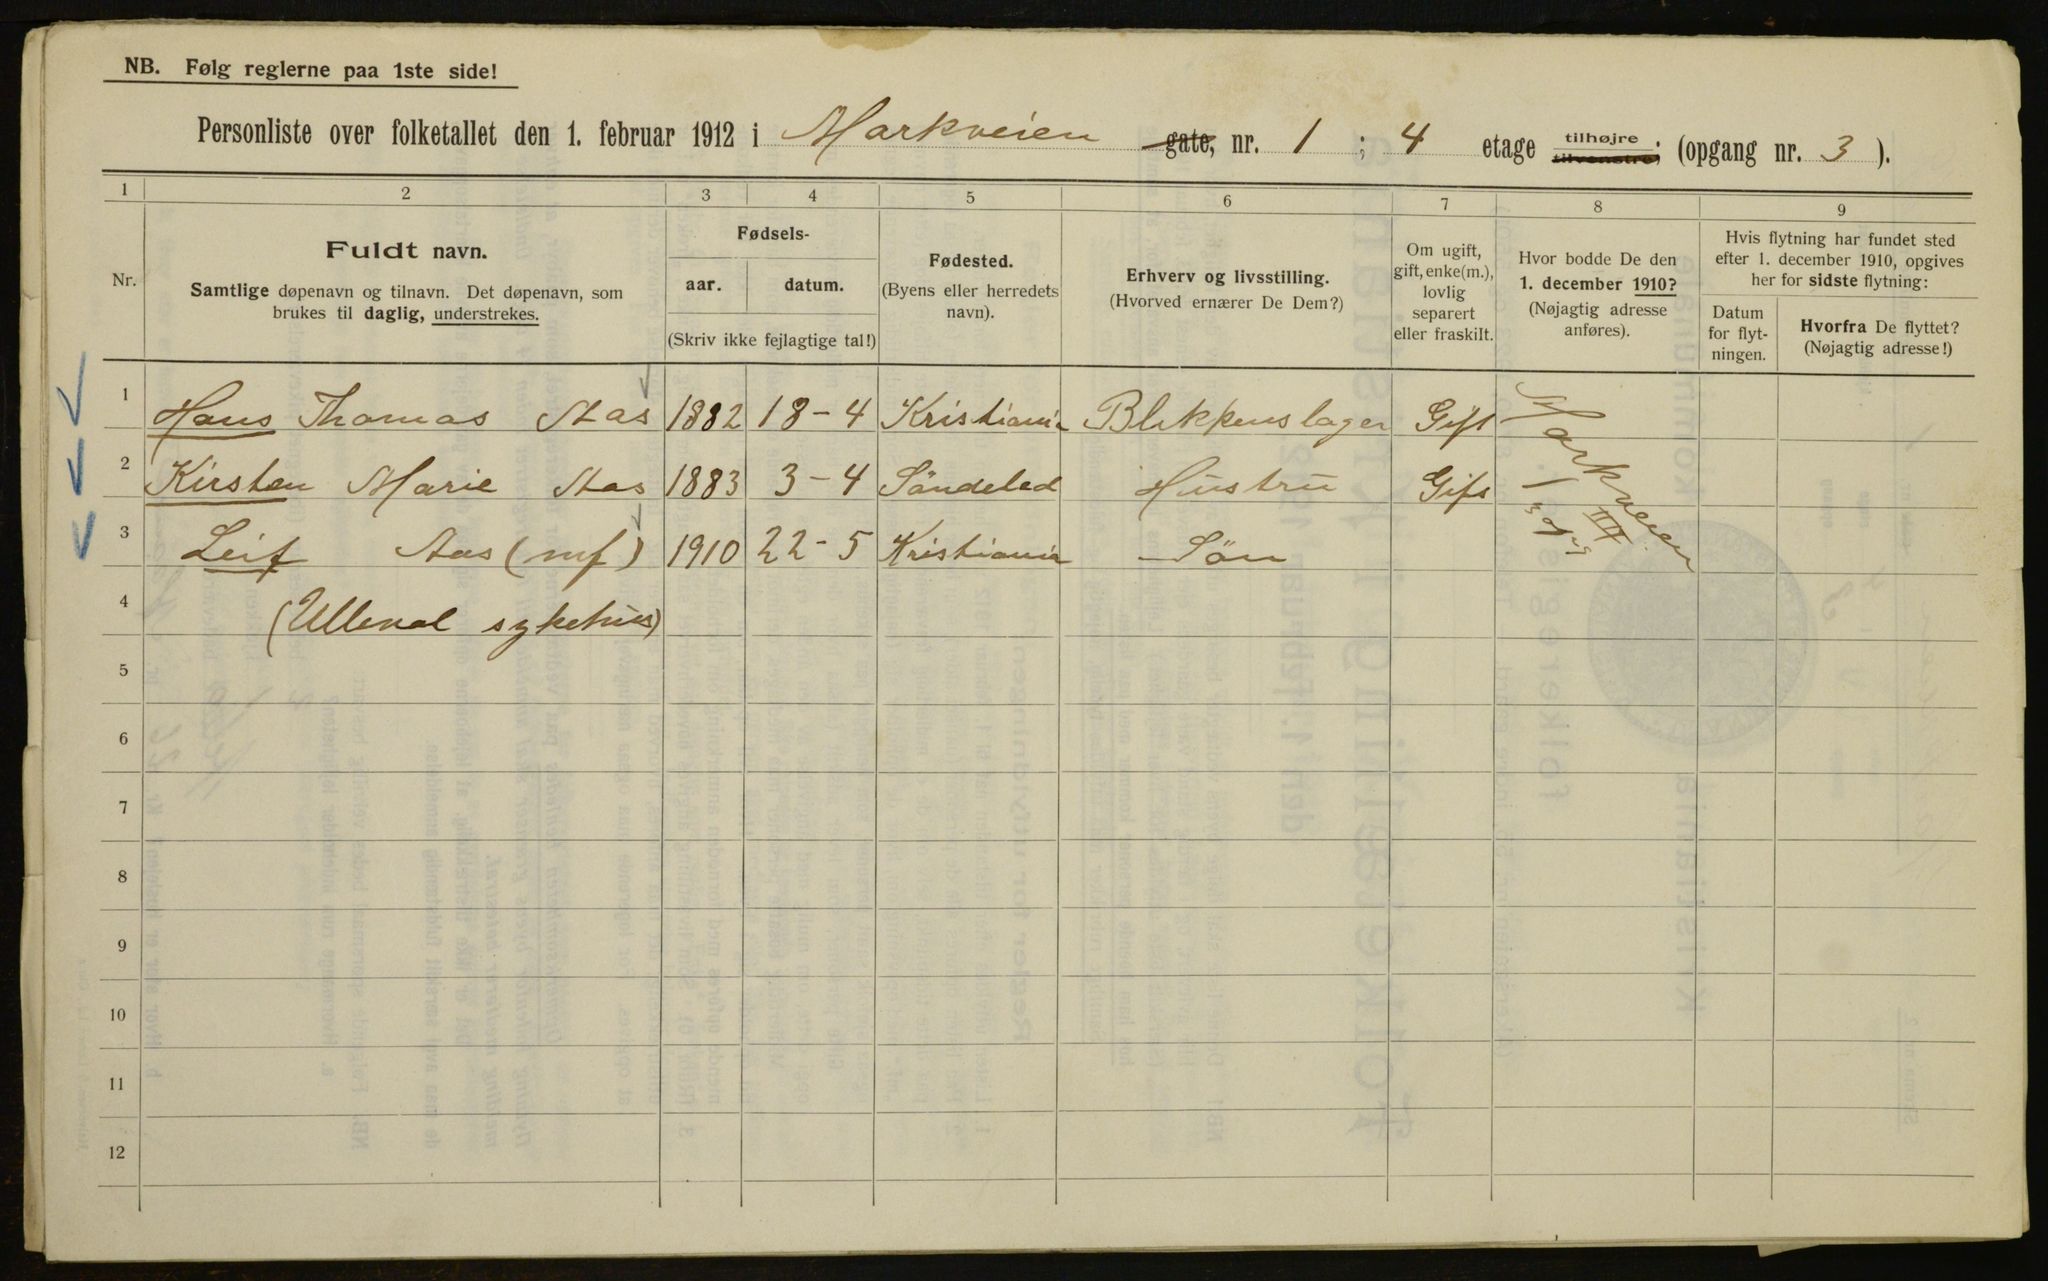 NB. Følg reglerne paa 1ste side!
Personliste over folketallet den 1. februar 1912 i Markveien gate, nr. 1 ; 4 etage tilhøjre, tilvenstre, (opgang nr. 3 ).
1 2 3 4 5 6 7 8 9
Nr.
Fuldt navn.
Samtlige døpenavn og tilnavn. Det døpenavn, som
brukes til daglig, understrekes.
Fødsels-
aar. datum.
(Skriv ikke fejlagtige tal!)
Fødested.
(Byens eller herredets
navn).
Erhverv og livsstilling.
(Hvorved ernærer De Dem?)
Om ugift,
gift, enke(m.),
lovlig
separert
eller fraskilt.
Hvor bodde De den
1. december 1910?
(Nøjagtig adresse
anføres).
Hvis flytning har fundet sted
efter 1. december 1910, opgives
her for sidste flytning:
Datum
for flyt-
ningen.
Hvorfra De flyttet?
(Nøjagtig adresse!)
1 Hans Thomas Aas 1882 18-4 Kristiania Blikkenslager Gift Markveien
2 Kirsten Marie Aas 1883 3-4 Söndeled Hustru Gift 1 III
3 Leif Aas (mf) 1910 22-5 Kristiania Sön
4 (Ulleval sykehus)
5
6
7
8
9
10
11
12